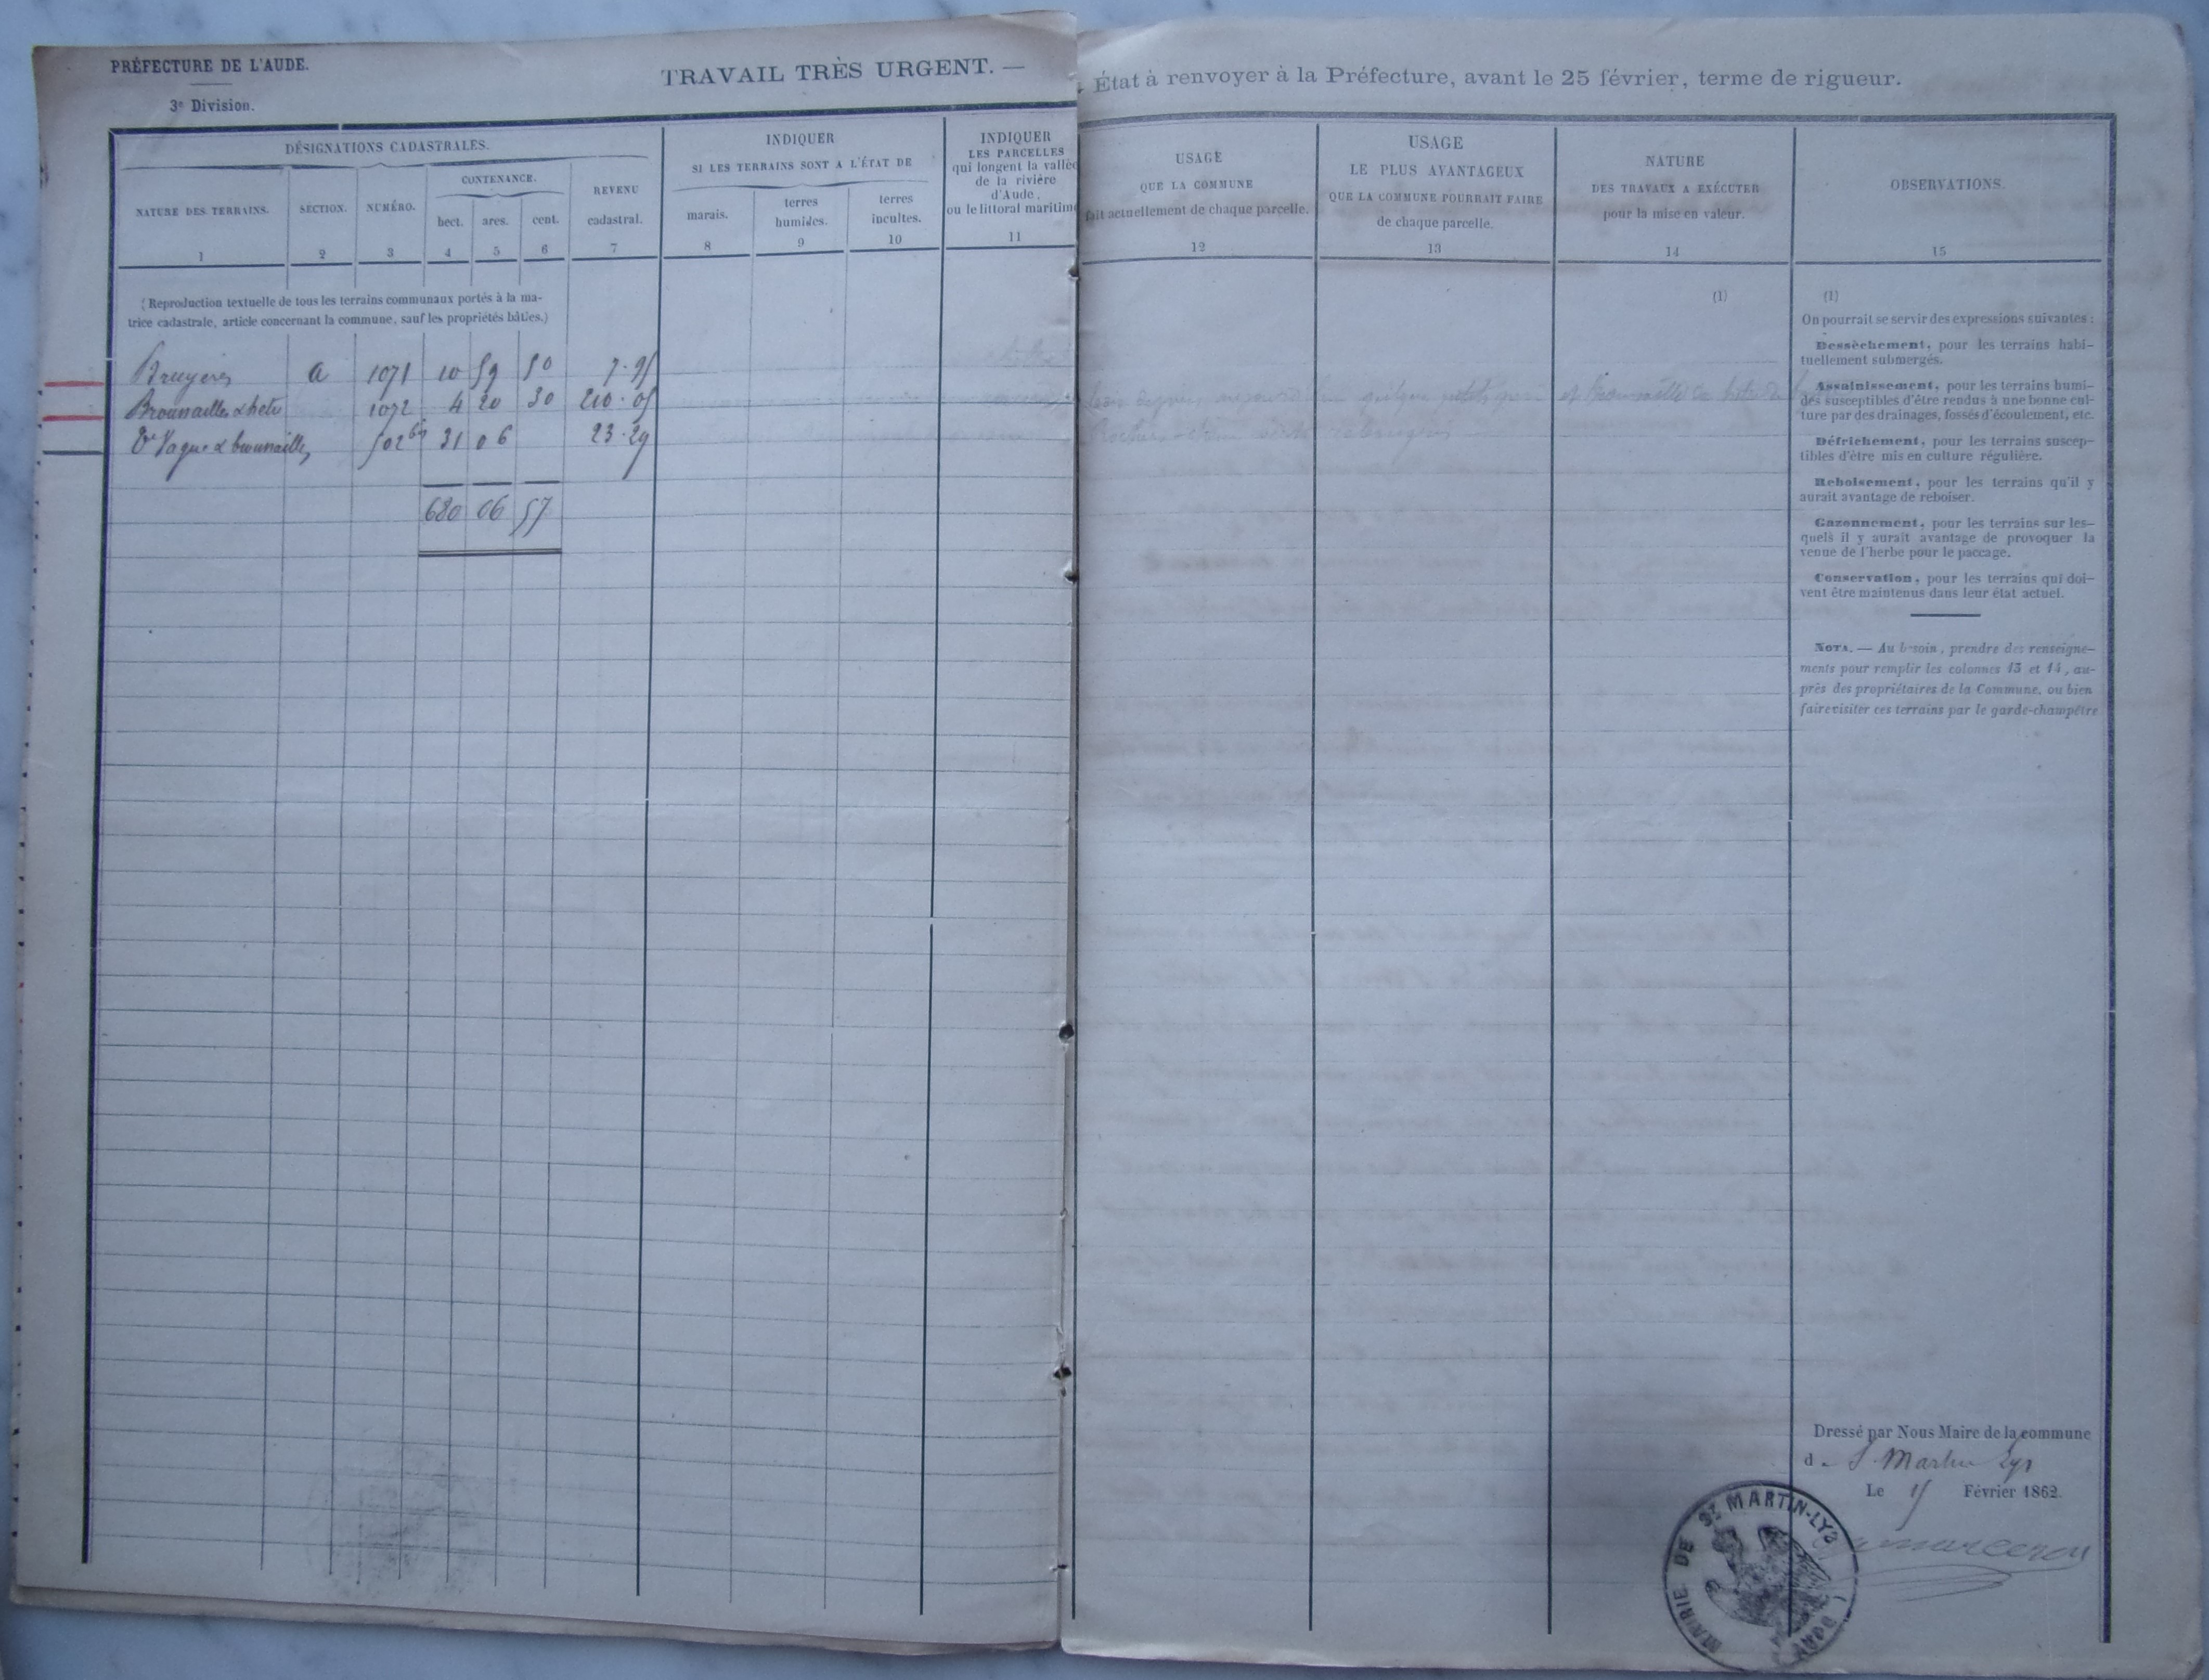 PRÉFECTURE DE L'AUDE.
3e Division.
TRAVAIL TRÈS URGENT. —
État à renvoyer à la Préfecture, avant le 25 février, terme de rigueur.
DÉSIGNATIONS CADASTRALES.
NATURE DES TERRAINS.
1
SECTION.
2
NUMÉRO.
3
CONTENANCE.
hect.
4
ares.
5
cent.
6
REVENU
cadastral.
7
INDIQUER
SI LES TERRAINS SONT A L'ÉTAT DE
marais.
8
terres
humides.
9
terres
incultes.
10
INDIQUER
LES PARCELLES
qui longent la vallée
de la rivière
d'Aude,
ou le littoral maritime
11
USAGE
QUE LA COMMUNE
fait actuellement de chaque parcelle.
12
USAGE
LE PLUS AVANTAGEUX
QUE LA COMMUNE POURRAIT FAIRE
de chaque parcelle.
13
NATURE
DES TRAVAUX A EXÉCUTER
pour la mise en valeur.
14
OBSERVATIONS.
15
(Reproduction textuelle de tous les terrains communaux portés à la ma-
trice cadastrale, article concernant la commune, sauf les propriétés bâties.)
Bruyères a 1071 10 59 50 7.95
Broussailles & hetre 1072 4 20 30 210.05
Vague & broussailles 31 06 23.29
680 06 57
(1)
(1)
On pourrait se servir des expressions suivantes :
Dessèchement, pour les terrains habi-
tuellement submergés.
Assainissement, pour les terrains humi-
des susceptibles d'être rendus à une bonne cul-
ture par des drainages, fossés d'écoulement, etc.
Défrichement, pour les terrains suscep-
tibles d'être mis en culture régulière.
Reboisement, pour les terrains qu'il y
aurait avantage de reboiser.
Gazonnement, pour les terrains sur les-
quels il y aurait avantage de provoquer la
venue de l'herbe pour le paccage.
Conservation, pour les terrains qui doi-
vent être maintenus dans leur état actuel.
NOTA. — Au besoin, prendre des renseigne-
ments pour remplir les colonnes 13 et 14, au-
près des propriétaires de la Commune, ou bien
faire visiter ces terrains par le garde-champêtre
Dressé par Nous Maire de la commune
de St Martin Lys
Le 15 Février 1862.
MAIRIE DE ST MARTIN-LYS (AUDE)